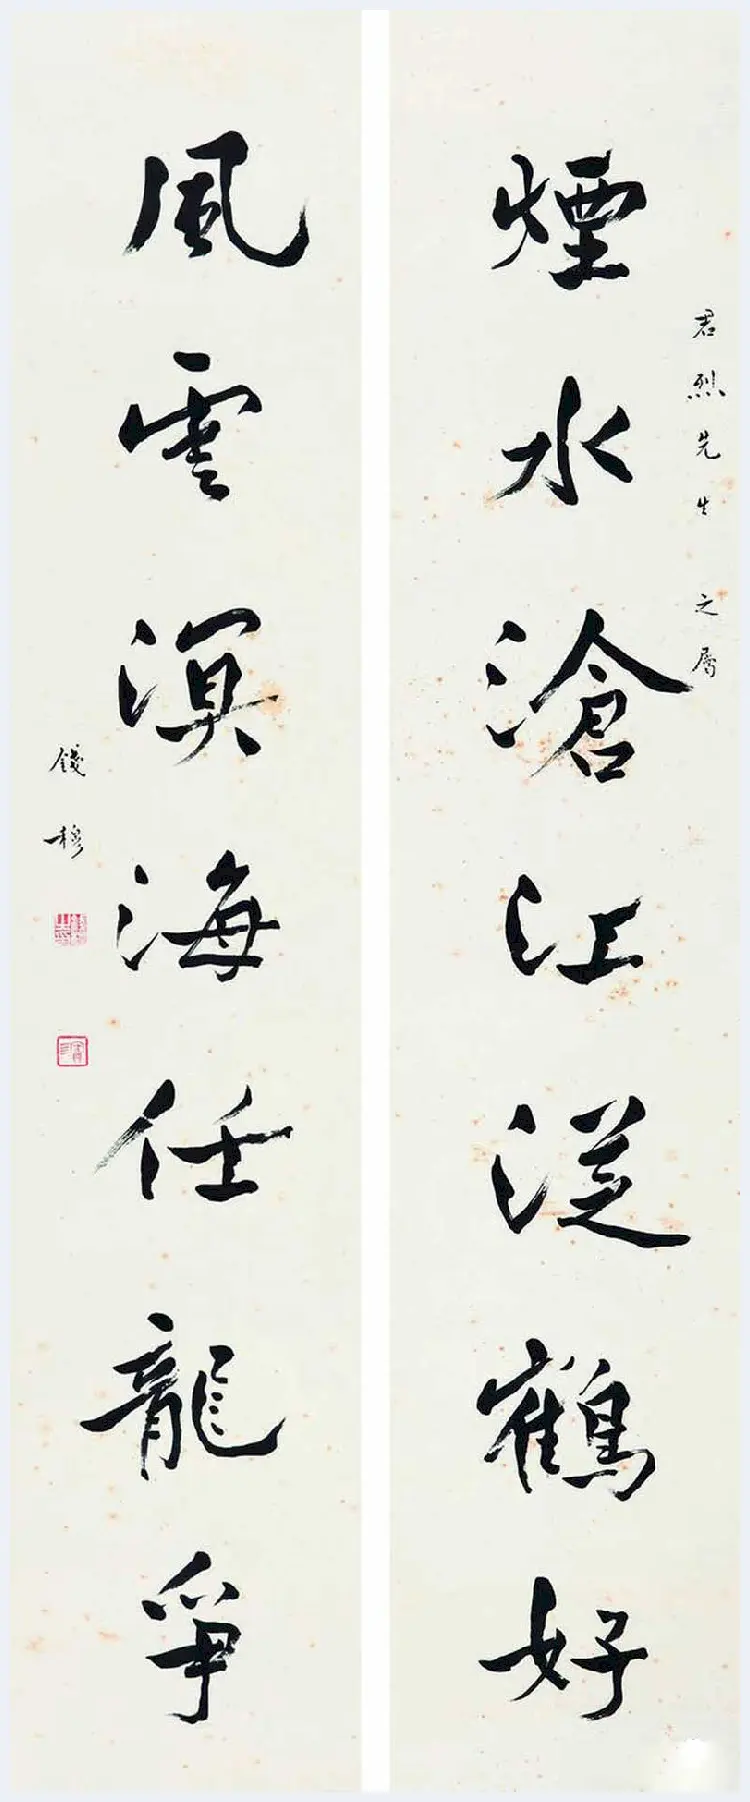 君烈先生 之属
煙水滄江從鶴好
風雲溟海任龍爭
錢穆